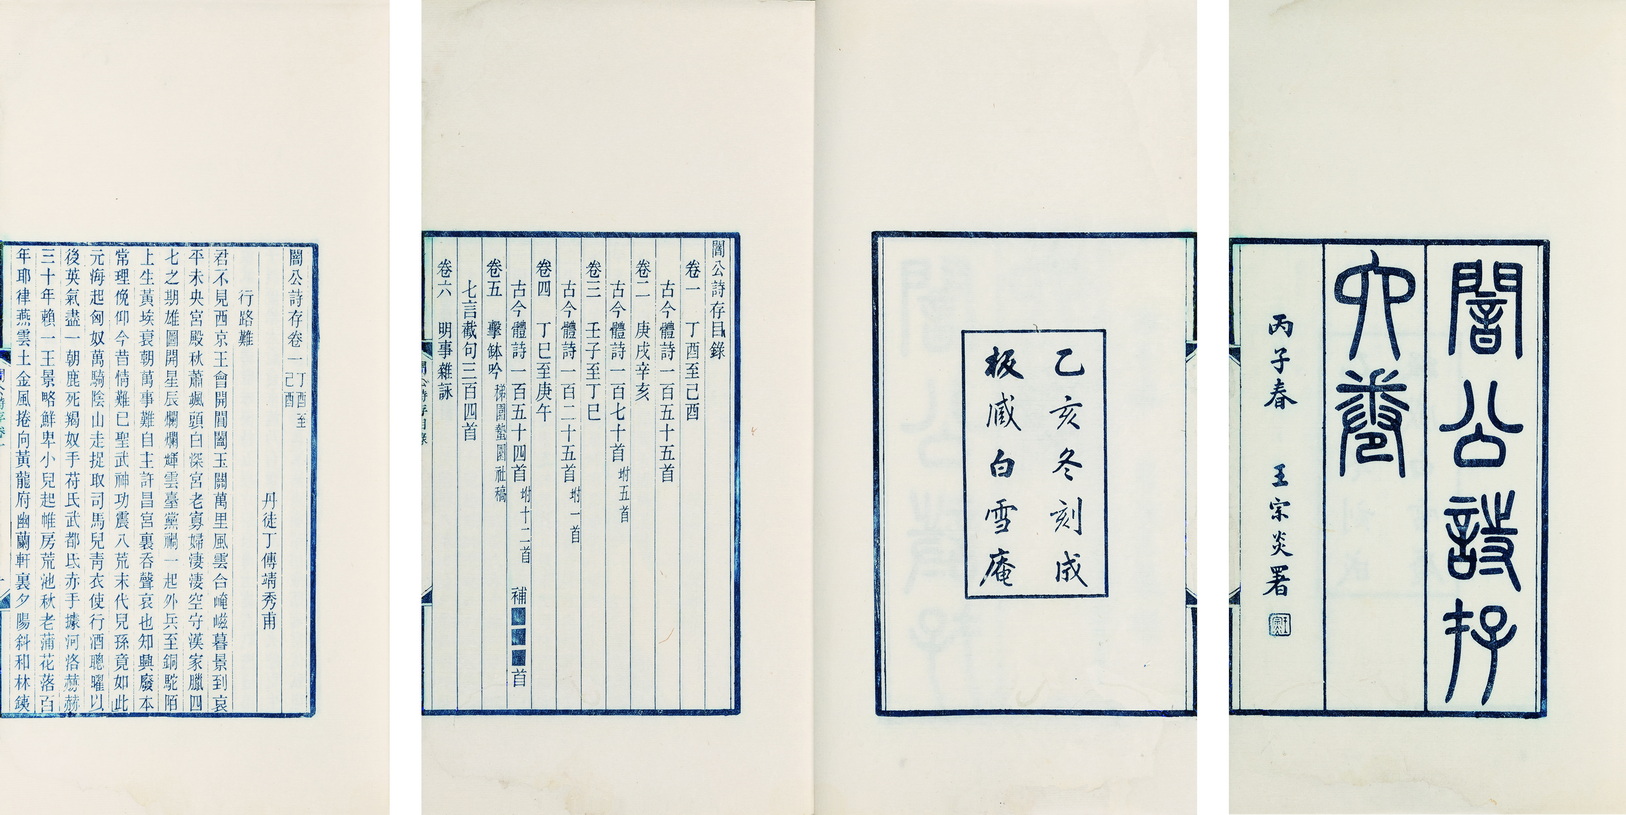 誾公詩存
六卷
丙子春 王宗炎署
乙亥冬刻成
板臧白雪庵
誾公詩存目錄
卷一 丁酉至己酉
古今體詩一百五十五首
卷二 庚戌辛亥
古今體詩一百七十首 坿五首
卷三 壬子至丁巳
古今體詩一百二十五首 坿一首
卷四 丁巳至庚午
古今體詩一百五十四首 坿十二首 補■■■首
卷五 擊缽吟 梯園蟄園社稿
七言截句三百四首
卷六 明事雜詠
誾公詩存目錄
誾公詩存卷一 丁酉至己酉
丹徒丁傳靖秀甫
行路難
君不見西京王會開閶闔玉關萬里風雲合崦嵫暮景到哀
平未央宮殿秋蕭颯頭白深宮老寡婦淒淒空守漢家臘四
七之期雄圖開星辰爛爛輝雲臺黨禍一起外兵至銅駝陌
上生黃埃衰朝萬事難自主許昌宮裏吞聲哀也知興廢本
常理俛仰今昔情難已聖武神功震八荒末代兒孫竟如此
元海起匈奴萬騎陰山走捉取司馬兒靑衣使行酒聰曜以
後英氣盡一朝鹿死羯奴手苻氏武都氐赤手據河洛赫赫
三十年賴一王景略鮮卑小兒起帷房荒池秋老蒲花落百
年耶律燕雲土金風捲向黃龍府幽蘭軒裏夕陽斜和林鐵
誾公詩存卷一